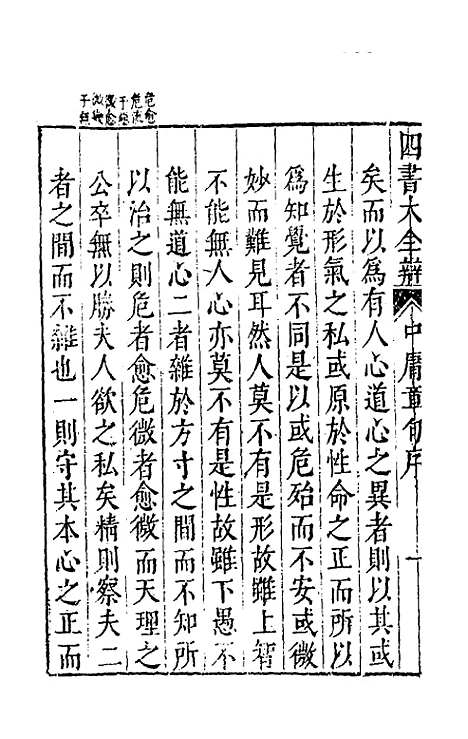 四書大全辯 中庸章句序 一
矣而以爲有人心道心之異者則以其或
生於形氣之私或原於性命之正而所以
爲知覺者不同是以或危殆而不安或微
妙而難見耳然人莫不有是形故雖上智
不能無人心亦莫不有是性故雖下愚不
能無道心二者雜於方寸之間而不知所
以治之則危者愈危微者愈微而天理之
公卒無以勝夫人欲之私矣精則察夫二
者之間而不雜也一則守其本心之正而
危愈
危流